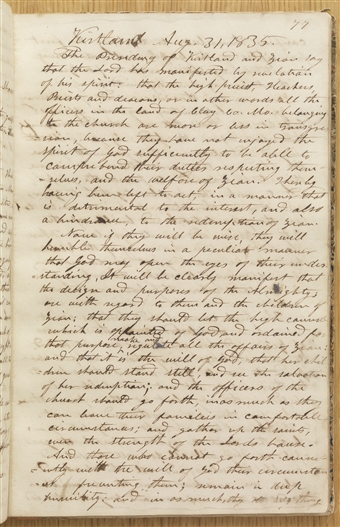 77
Kirtland Aug. 31, 1835.
The Presidency of Kirtland and Zion say
that the Lord has manifested by revelation
of his spirit, that the high priest Teachers,
Priests and deacons, or in other words all the
officers in the land of Clay Co. Mo. belonging
to the church are more or less in transgres
=sion, because they have not enjoyed the
spirit of God sufficiently to be able to
comprehend their duties respecting them
selves, and the welfare of Zion. Thereby
having been left to act in a manner that
is detrimental to the interest, and also
a hindrance to the redemption of Zion
Now if they will be wise, they will
humble themselves in a peculiar manner
that God may open the eyes of their under
standing. It will be clearly manifest what
the design and purposes of the Almighty
are with regard to them and the children of
Zion; that they should let the high council
which is appointed of God and ordained for
that purpose, make and regulate all the affairs of Zion:
and that it is the will of God that her chil
dren should stand still, and see the salvation
of her redemption; and the officers of the
church should go forth, inasmuch as they
can leave their families in comfortable
circumstances; and gather up the saints,
even the strength of the Lords house.
And those who cannot go forth consis
ently with the will of God their circumstan
ces preventing them; remain in deep
humility; and in as much as